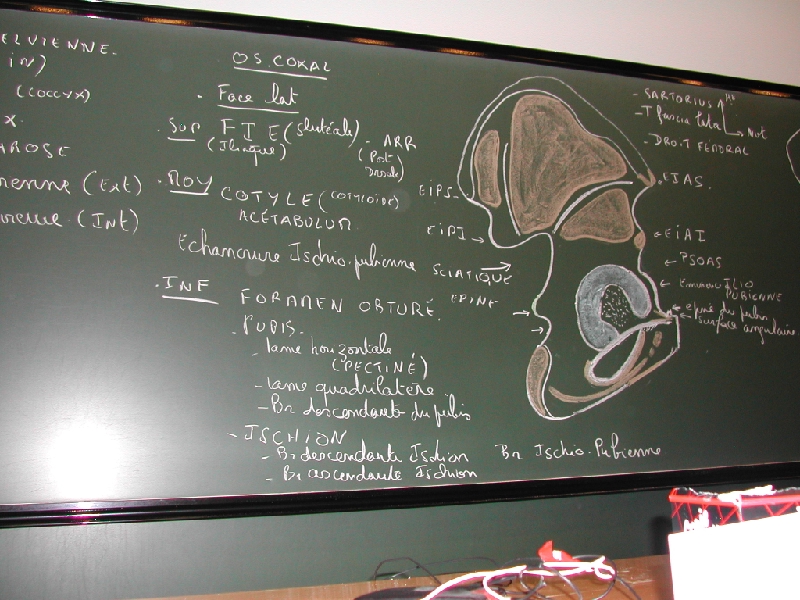 ELVIENNE.
in)
(COCCYX)
X.
AROSE
ienne (Ext)
ienne (Int)
OS COXAL
. Face lat
. Sup FIE (glutéale)
(Iliaque)
- ARR
(Post
Dorsale)
. MOY COTYLE (cotyloïde)
ACÉTABULUM
Échancrure Ischio-pubienne
. INF FORAMEN OBTURÉ.
. PUBIS.
- lame horizontale
(PECTINÉ)
- lame quadrilatère.
- Br descendante du pubis
- ISCHION
- Br descendante Ischion
- Br ascendante Ischion
Br Ischio-Pubienne
EIPS
EIPI
SCIATIQUE
EPINE
- SARTORIUS
- T fascia lata
- DROIT FEMORAL
EIAS.
EIAI
PSOAS
Eminence ILIO
PUBIENNE
epine du pubis
surface angulaire